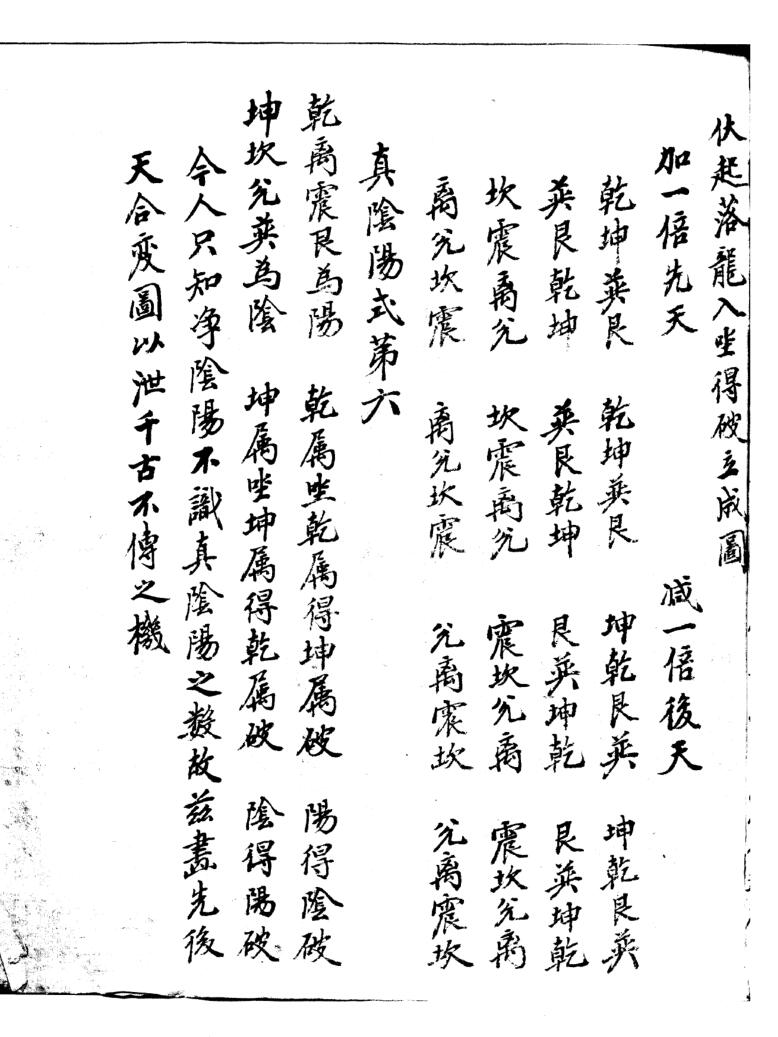 伏起落龍入坐得破立成圖
加一倍先天　減一倍後天
乾坤巽艮　乾坤巽艮　坤乾艮巽　坤乾艮巽
巽艮乾坤　巽艮乾坤　艮巽坤乾　艮巽坤乾
坎震离兌　坎震离兌　震坎兌离　震坎兌离
离兌坎震　离兌坎震　兌离震坎　兌离震坎
真陰陽式第六
乾离震艮為陽　乾属坐乾属得坤属破　陽得陰破
坤坎兌巽為陰　坤属坐坤属得乾属破　陰得陽破
今人只知净陰陽不識真陰陽之数故兹畫先後
天合变圖以泄千古不傳之機